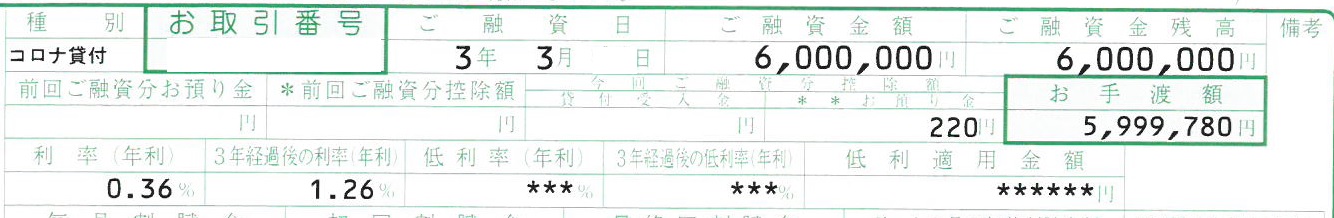 種別 お取引番号 ご融資日 ご融資金額 ご融資金残高 備考
コロナ貸付 3年 3月 日 6,000,000円 6,000,000円
前回ご融資分お預り金 *前回ご融資分控除額 今回ご融資分控除額 お手渡額
貸付受入金 **お預り金
円 円 円 220円 5,999,780円
利率(年利) 3年経過後の利率(年利) 低利率(年利) 3年経過後の低利率(年利) 低利適用金額
0.36% 1.26% ***% ***% ******円